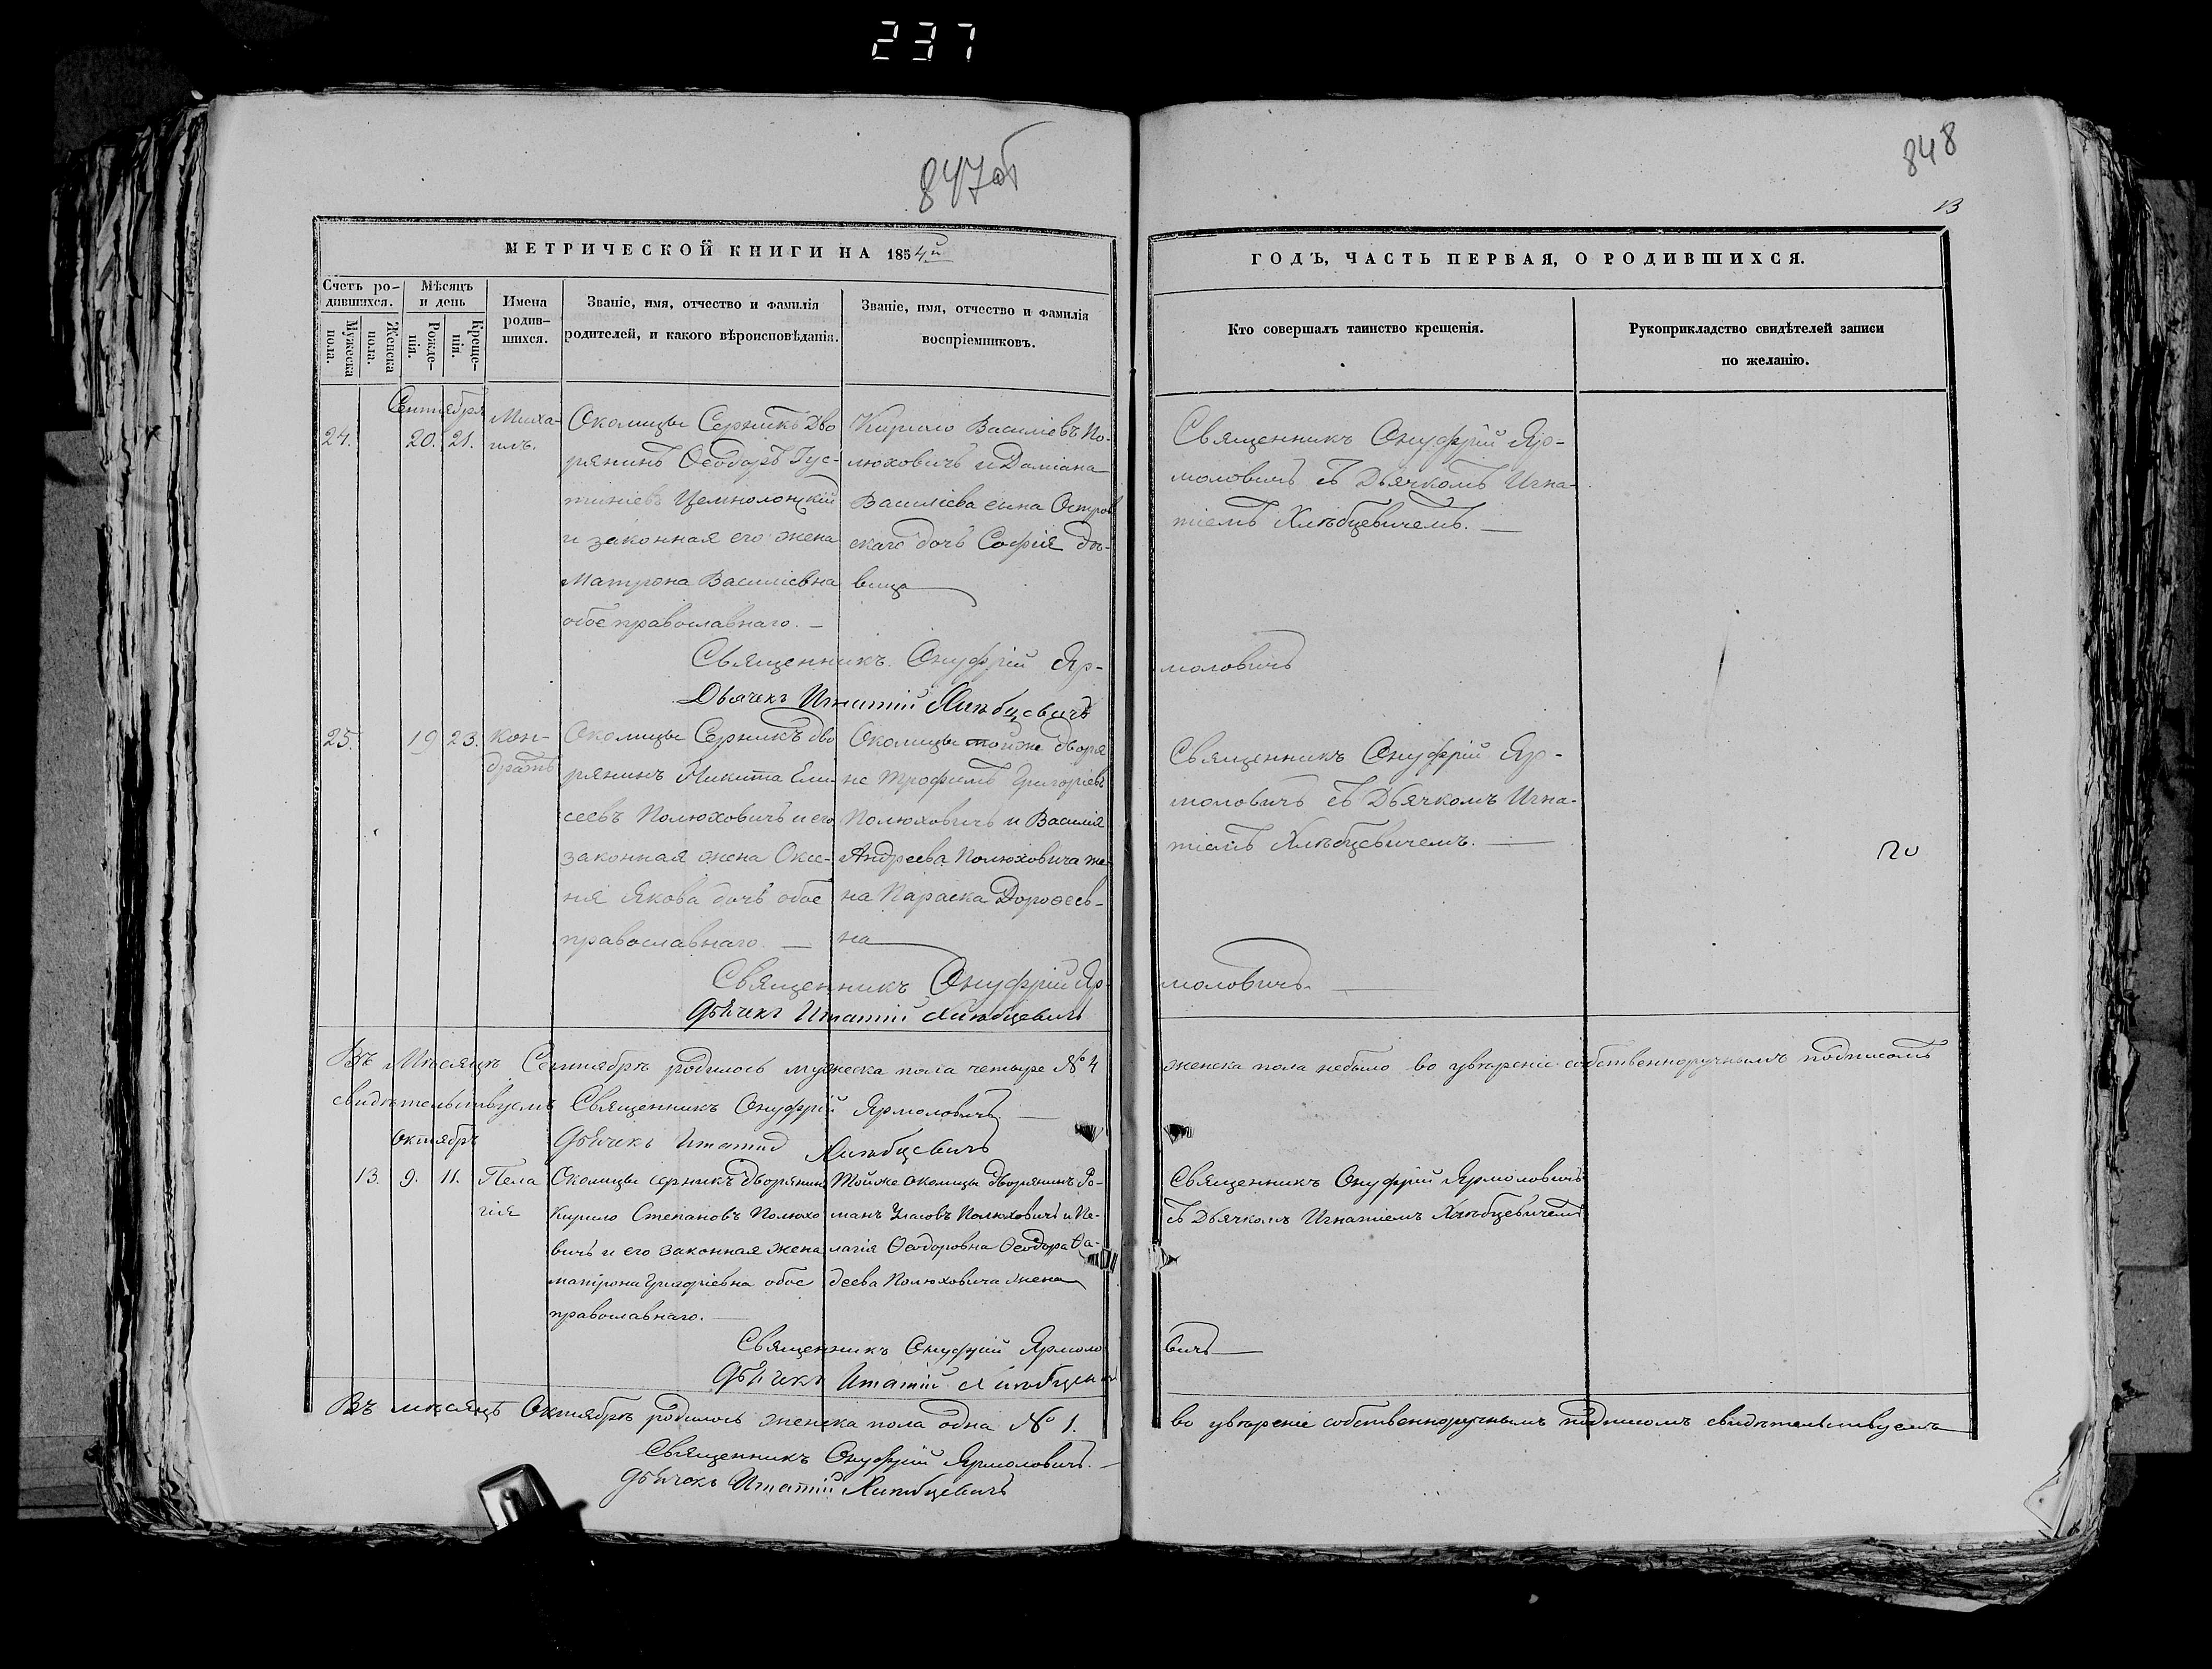 237
847об
848
13
МЕТРИЧЕСКОЙ КНИГИ НА 1854й
ГОДЪ, ЧАСТЬ ПЕРВАЯ, О РОДИВШИХСЯ.
Счетъ ро-
дившихся.
Мужеска
пола.
Женска
пола.
Мѣсяцъ
и день
Рожде-
нія.
Креще-
нія.
Имена
родив-
шихся.
Званіе, имя, отчество и фамилія
родителей, и какого вѣроисповѣданія.
Званіе, имя, отчество и фамилія
воспріемниковъ.
Кто совершалъ таинство крещенія.
Рукоприкладство свидѣтелей записи
по желанію.
Сентября
24.
20. 21.
Миха-
илъ.
Околицы Серникъ Дво
рянинъ Ѳеодоръ Іус-
тиніевъ
и законная его жена
Матрона Василіевна
обое православнаго. —
Кирило Василіевъ По-
люховичъ и Даміана
Василіева сына Остров
скаго дочь Софія дѣ-
вица
Священникъ Онуфрій Яр-
моловичъ съ Дьячкомъ Игна-
тіемъ Хлѣбцевичемъ. —
Священникъ Онуфрій Яр-
моловичъ
Дьячекъ Игнатій Хлѣбцевичъ
25.
19 23.
Кон-
дратъ
Околицы Серникъ дво
рянинъ Никита Ели-
сеевъ Полюховичъ и его
законная жена Оксе-
нія Якова дочь обое
православнаго. —
Околицы тойже дворя
не Трофимъ Григоріевъ
Полюховичъ и Василія
Андреева Полюховича же
на Параска Дороѳеев-
на
Священникъ Онуфрій Яр-
моловичъ съ Дьячкомъ Игна-
тіемъ Хлѣбцевичемъ. —
Священникъ Онуфрій Яр-
моловичъ.
Дьячекъ Игнатій Хлѣбцевичъ
Въ Мѣсяцѣ Сентябрѣ родилось мужеска пола четыре № 4
женска пола небыло во увѣреніе собственноручнымъ подписомъ
свидѣтельствуемъ Священникъ Онуфрій Ярмоловичъ. —
Дьячекъ Игнатій Хлѣбцевичъ
Октябрь
13.
9. 11.
Пела
гія
Околицы серникъ дворянинъ
Кирило Степановъ Полюхо
вичъ и его законная жена
матрона обое
православнаго. —
Тойже околицы дворянинъ Ро-
манъ Власовъ Полюховичъ и Пе-
лагія Ѳеодоровна Ѳеодора Ѳа-
деева Полюховича жена
Священникъ Онуфрій Ярмоловичъ
съ Дьячкомъ Игнатіемъ Хлѣбцевичемъ
Священникъ Онуфрій Ярмоло
вичъ —
Дьячекъ Игнатій Хлѣбцевичъ
Въ мѣсяцѣ Октябрѣ родилось женска пола одна № 1.
во увѣреніе собственноручнымъ подписомъ свидѣтельствуемъ
Священникъ Онуфрій Ярмоловичъ. —
Дьячекъ Игнатій Хлѣбцевичъ